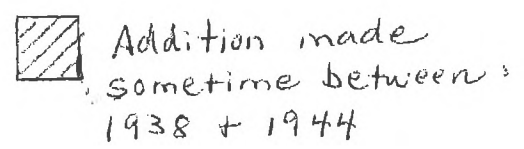 Addition made
sometime between:
1938 + 1944